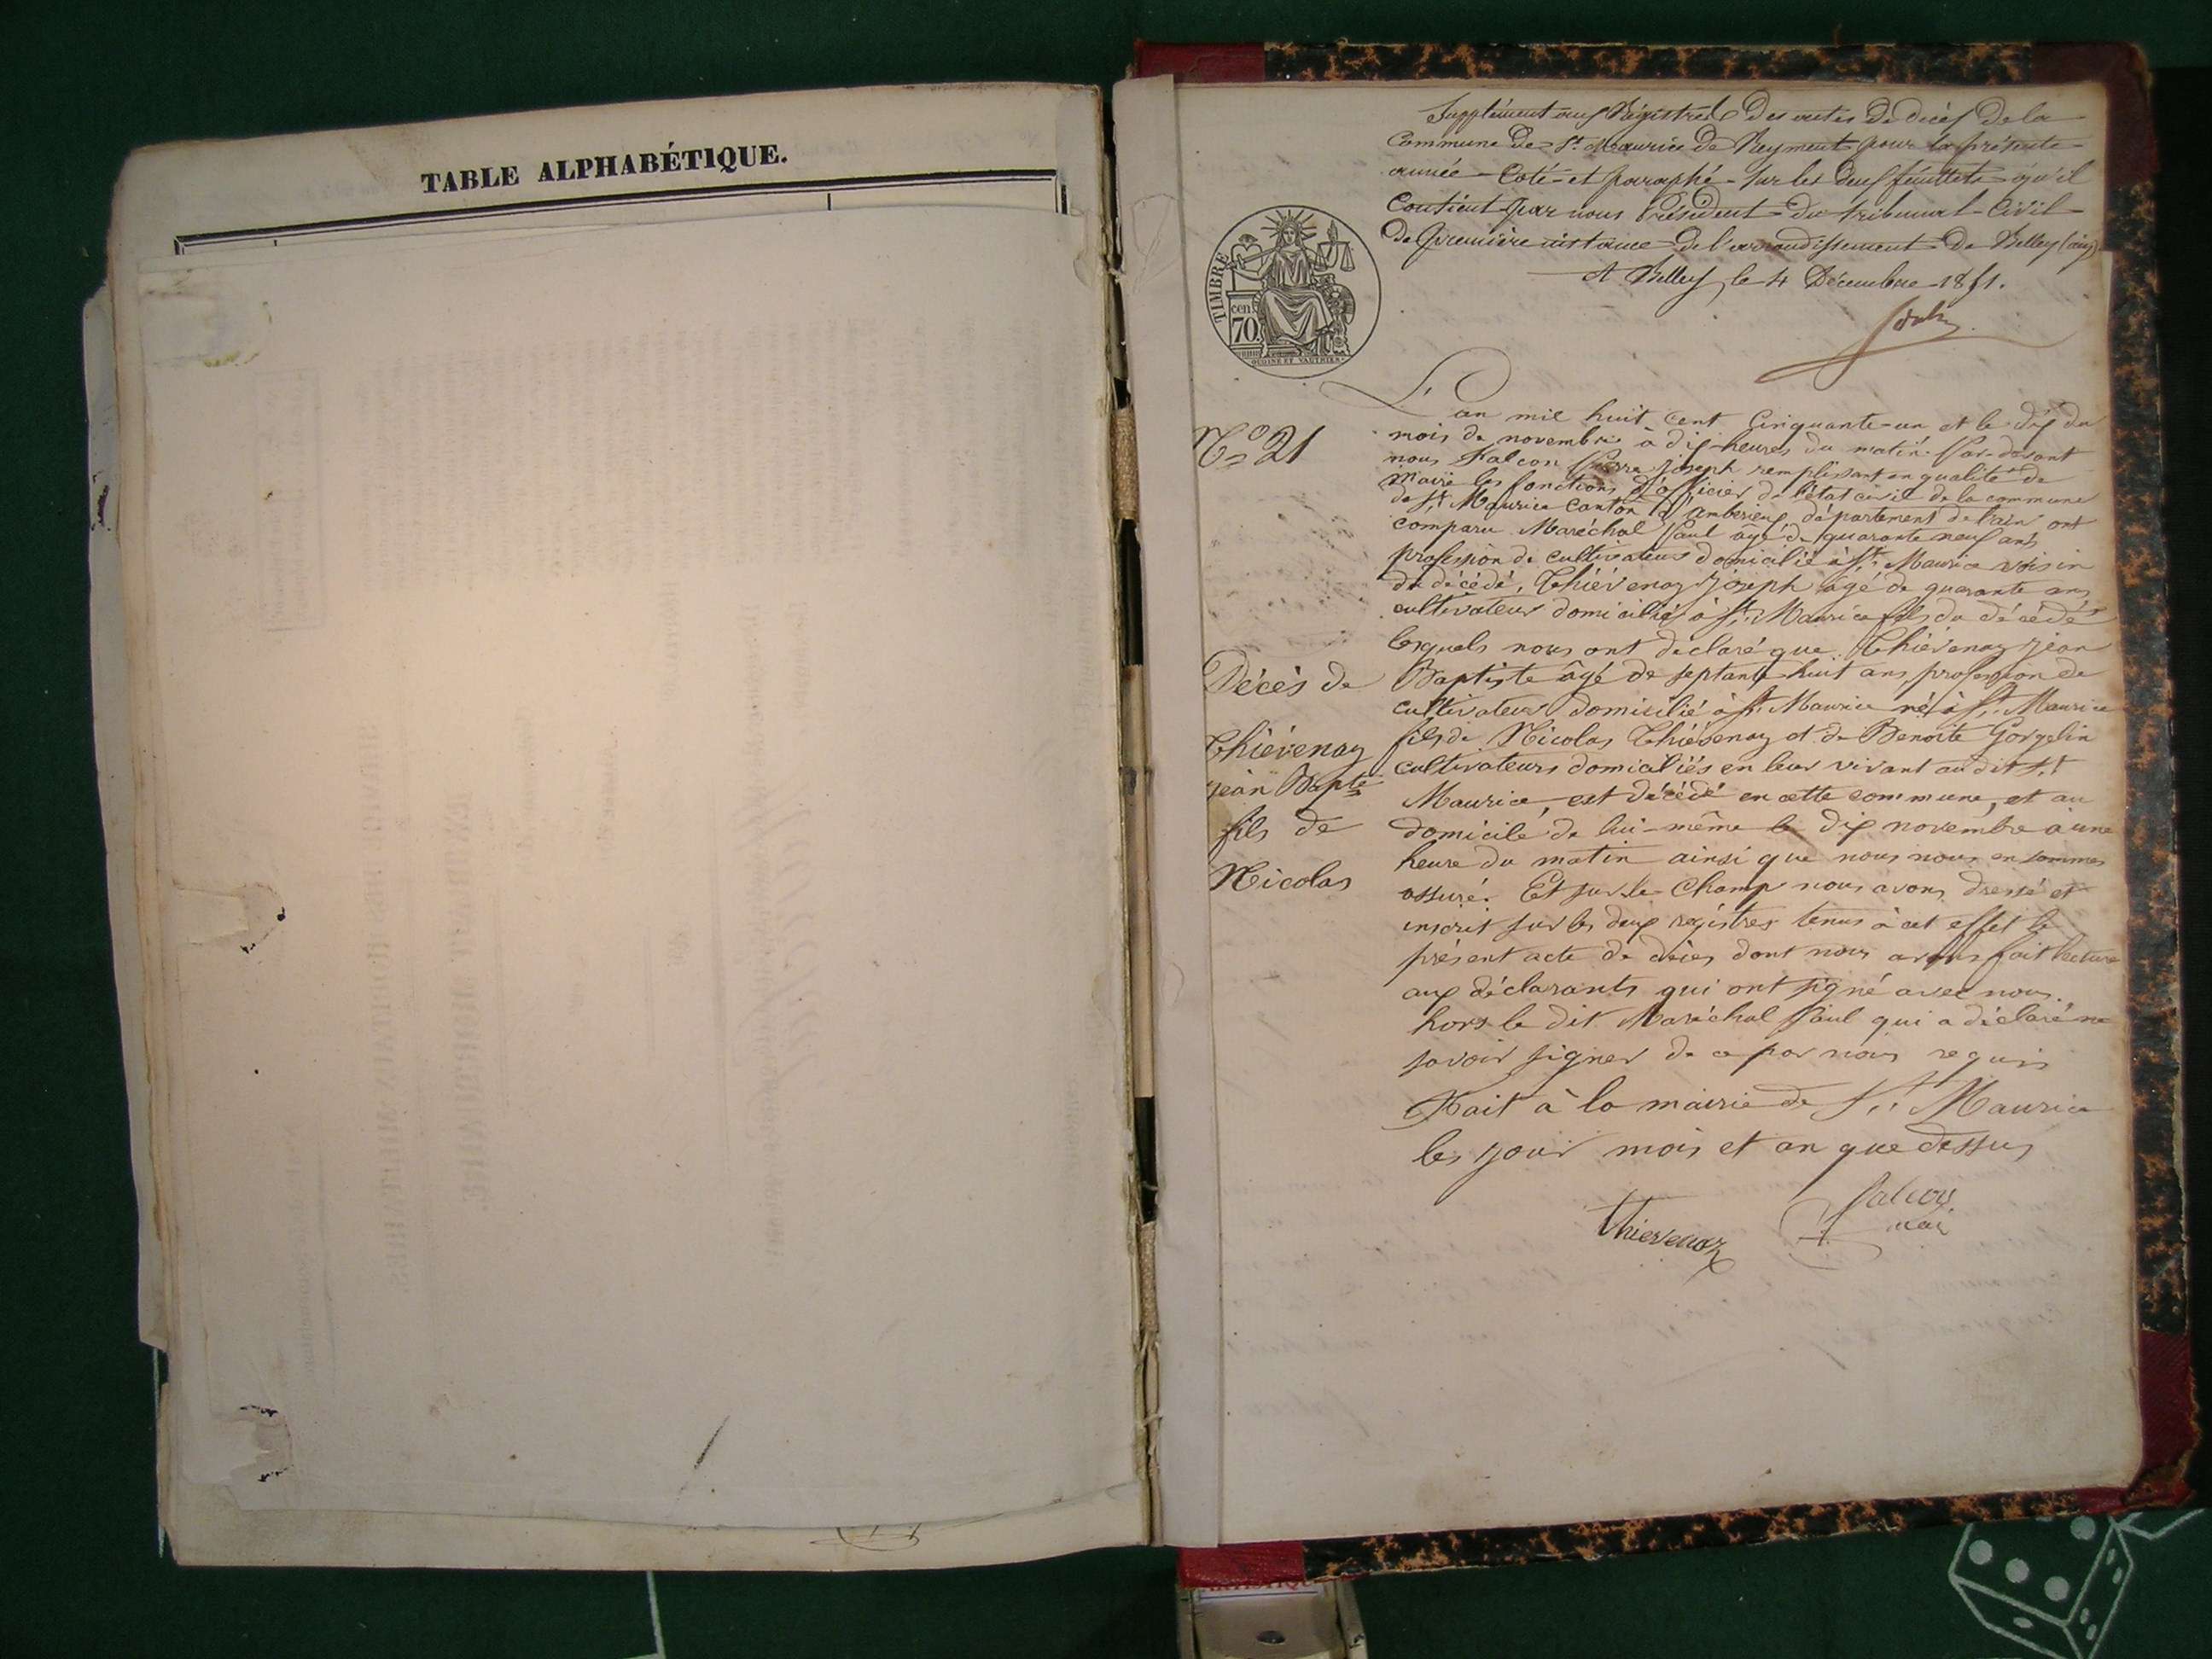 TABLE ALPHABÉTIQUE.
Supplément aux Régistres Des actes De décès De la
Commune De St. Maurice De Reyment pour la présente
année Coté et paraphé sur les deux feuillets qu'il
Contient par nous Président du tribunal Civil
De première instance De l'arrondissement De Belley (ain).
A Belley le 4 Décembre 1851.
TIMBRE
cen.
70.
N° 21
L'an mil huit cent Cinquante-un et le dix du
mois de novembre à dix heures du matin. Par-devant
nous Falcon Pierre Joseph remplissant en qualité de
Maire les fonctions d'officier de l'état civil de la commune
de St. Maurice Canton d'amberieux, département de l'ain ont
comparu Maréchal Paul âgé de quarante neuf ans
profession de cultivateur domicilié à St. Maurice voisin
du décédé, Thiévenaz Joseph âgé de quarante ans
cultivateur domicilié à St. Maurice fils du décédé
lesquels nous ont déclaré que Thiévenaz Jean
Baptiste âgé de septante huit ans, profession de
cultivateur domicilié à St. Maurice né à St. Maurice
fils de Nicolas Thiévenaz et de Benoite Gorgelin
cultivateurs domiciliés en leur vivant au dit St.
Maurice, est décédé en cette commune, et au
domicile de lui-même le dix novembre à une
heure du matin ainsi que nous nous en sommes
assuré. Et sur le Champ nous avons dressé et
inscrit sur les deux registres tenus à cet effet le
présent acte de décès dont nous avons fait lecture
aux déclarants qui ont signé avec nous.
hors le dit Maréchal Paul qui a déclaré ne
savoir signer de ce par nous requis
Fait à la mairie de St. Maurice
les jour mois et an que dessus
Décès de
Thiévenaz
Jean Bapte
fils de
Nicolas
Thievenaz
Falcon